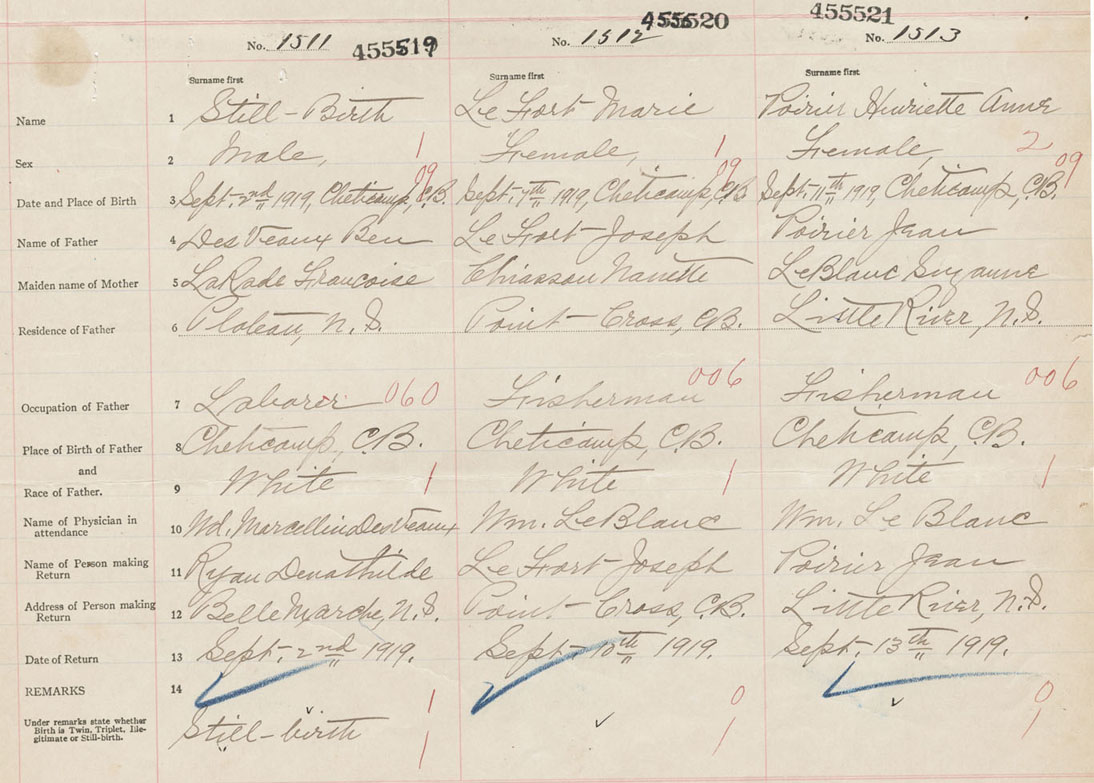 No. 1511 455519 No. 1512 455520 No. 1513 455521
Surname first Surname first Surname first
Name 1 Still-Birth Le Fort Marie Poirier Henriette Anne
Sex 2 Male, 1 Female, 1 Female, 2
09 09 09
Date and Place of Birth 3 Sept. 2nd 1919, Cheticamp, C.B. Sept. 7th 1919, Cheticamp, C.B. Sept. 11th 1919, Cheticamp, C.B.
Name of Father 4 DesVeaux Ben Le Fort Joseph Poirier Jean
Maiden name of Mother 5 LaRade Francoise Chiasson Nanette LeBlanc Suzanne
Residence of Father 6 Plateau, N.S. Point-Cross, C.B. Little River, N.S.
Occupation of Father 7 Laborer 060 Fisherman 006 Fisherman 006
Place of Birth of Father 8 Cheticamp, C.B. Cheticamp, C.B. Cheticamp, C.B.
and
Race of Father. 9 White 1 White 1 White 1
Name of Physician in
attendance 10 Wd. Marcellin DesVeaux Wm. LeBlanc Wm. Le Blanc
Name of Person making
Return 11 Ryan Denathilde Le Fort Joseph Poirier Jean
Address of Person making
Return 12 Belle Marche, N.S. Point-Cross, C.B. Little River, N.S.
Date of Return 13 Sept. 2nd 1919. Sept. 10th 1919. Sept. 13th 1919.
REMARKS 14 1 0 0
Under remarks state whether
Birth is Twin, Triplet, Ille-
gitimate or Still-birth. Still-birth 1 1 1